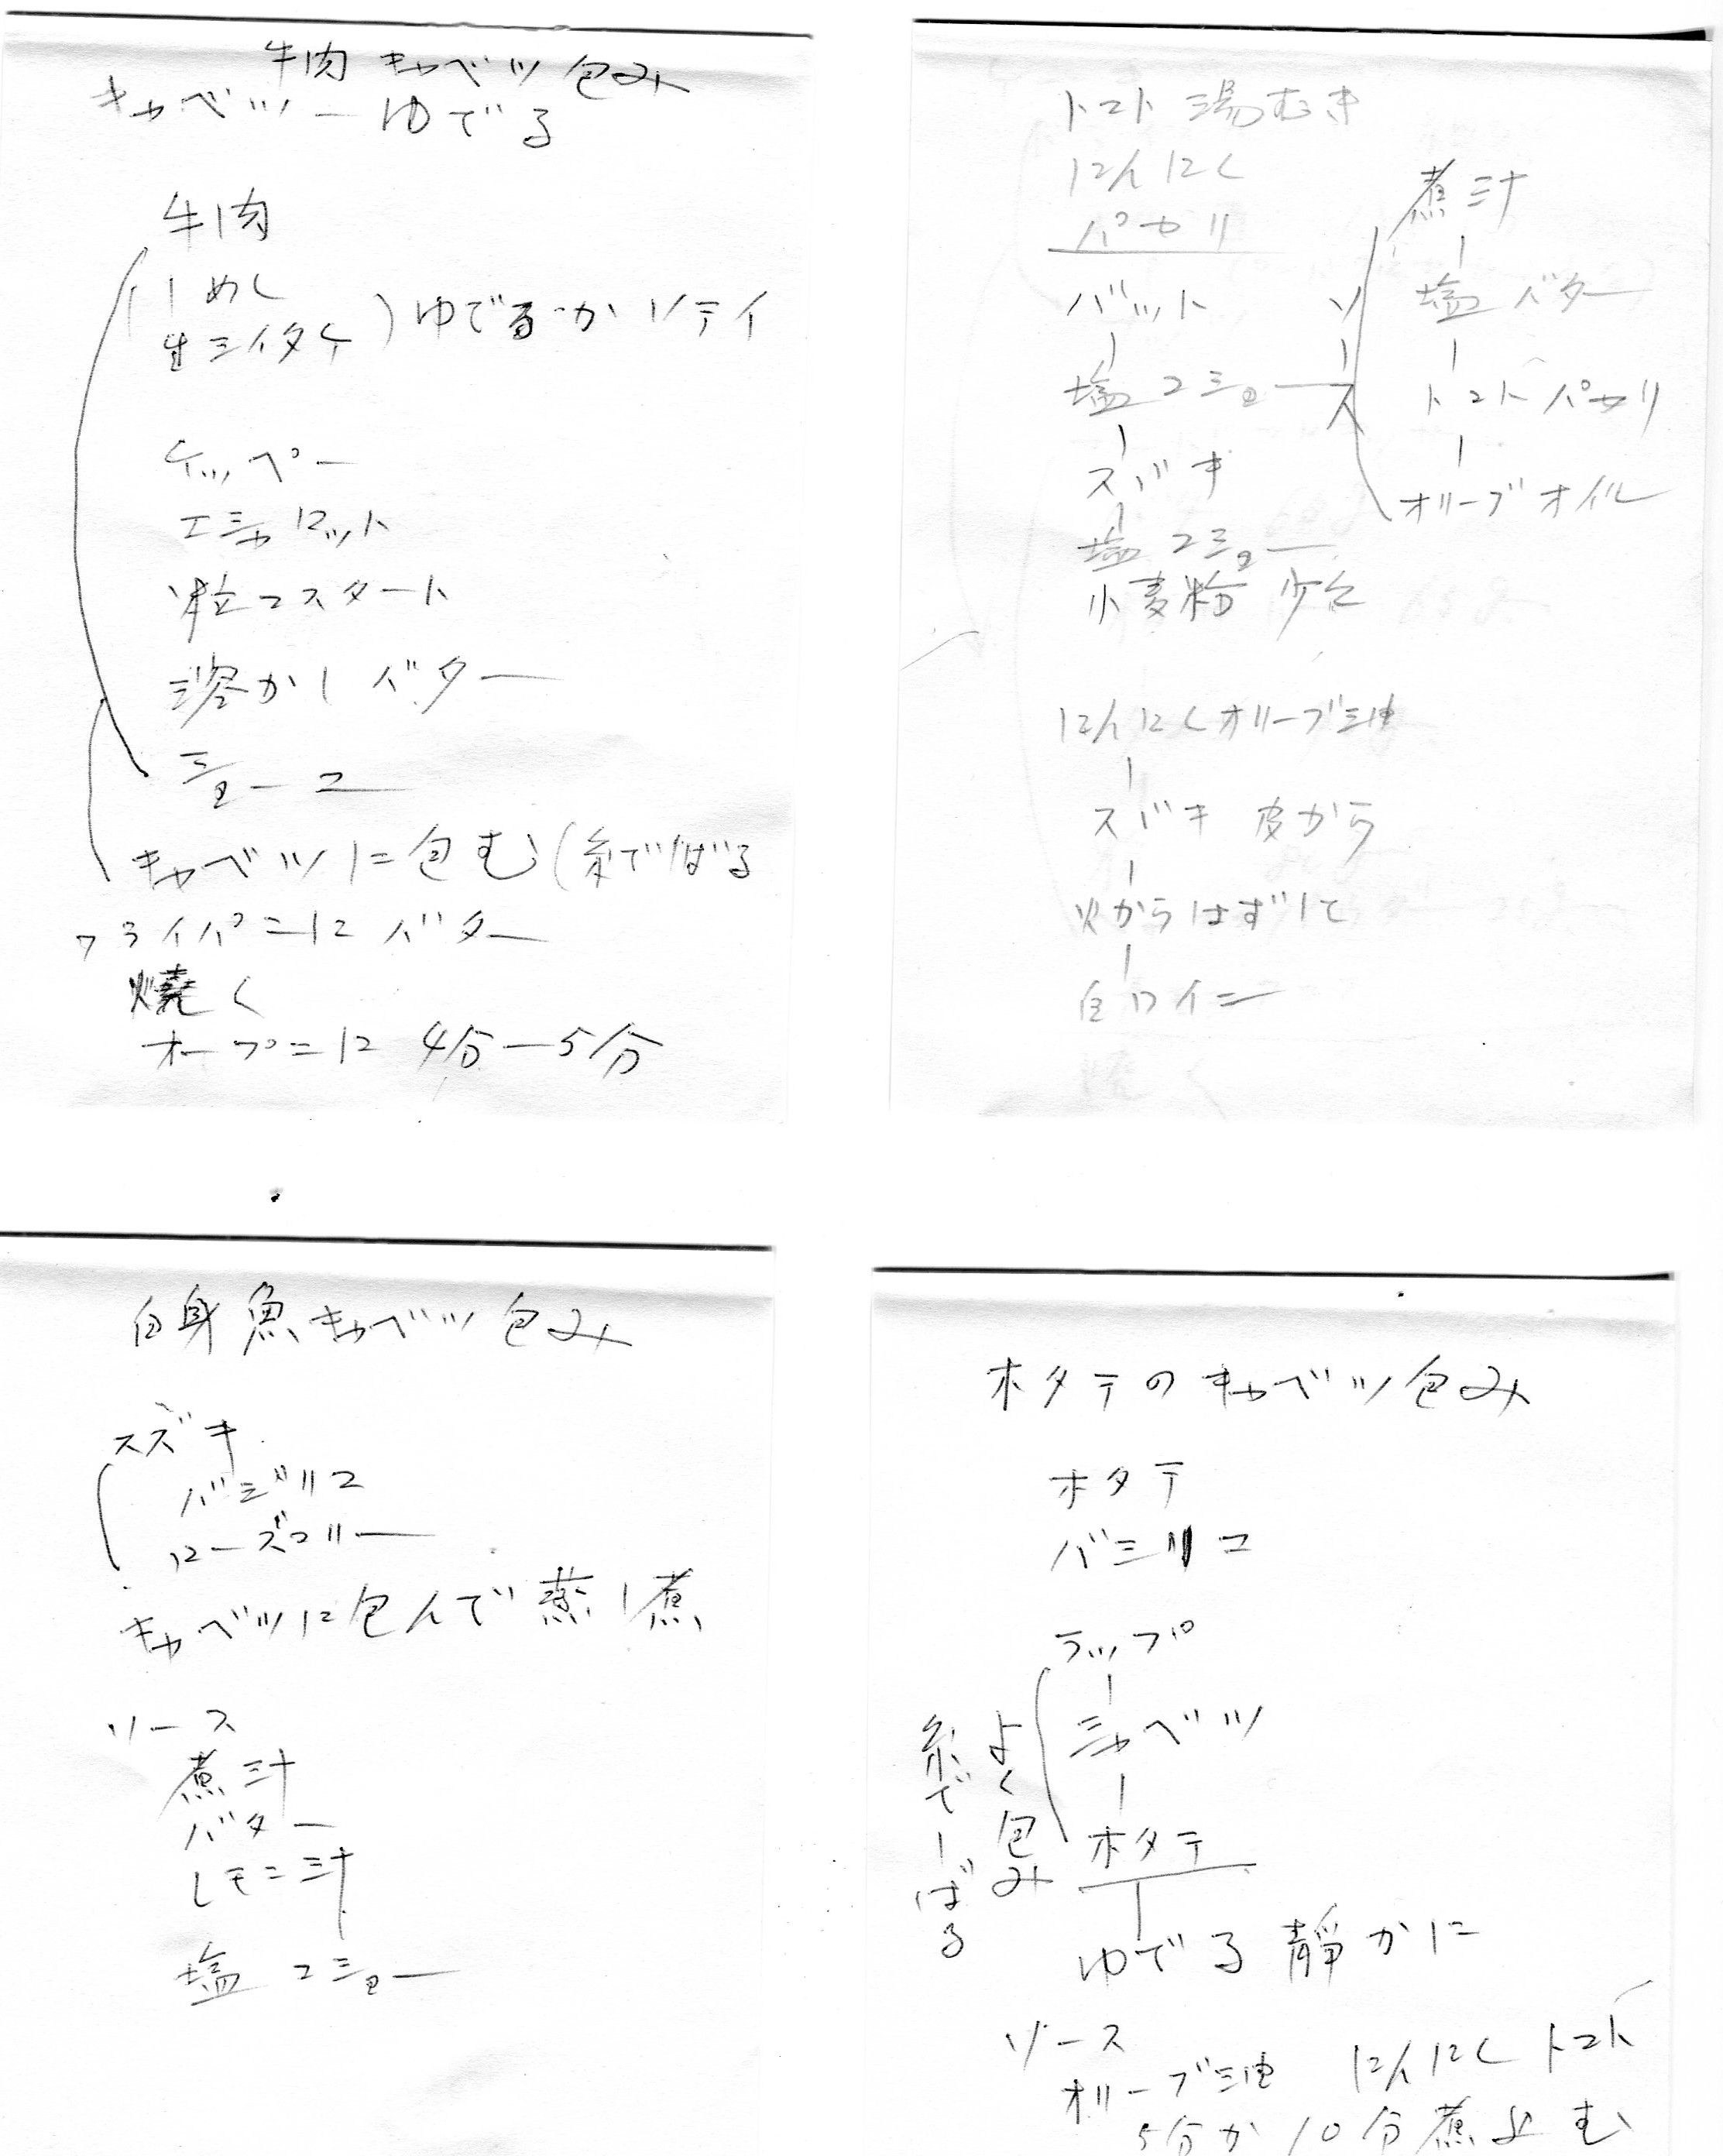 牛肉 キャベツ 包み
キャベツ ー ゆでる
牛肉
しめし
生シイタケ ) ゆでるか ソテイ
ケッペー
エシャロット
粒マスタート
溶かし バター
ショーユ
キャベツに包む (糸でしばる
フライパンに バター
焼く
オーブンに 4分ー5分
トマト 湯むき
にんにく
パセリ
バット
塩コショー
スズキ
塩コショー
小麦粉 少々
にんにくオリーブ油
スズキ 皮から
火からはずして
白ワイン
ソース
煮汁
塩 バター
トマト パセリ
オリーブオイル
白身魚キャベツ包み
スズキ
バジリコ
ローズマリー
キャベツに包んで 蒸し煮
ソース
煮汁
バター
レモン汁
塩 コショー
ホタテのキャベツ包み
ホタテ
バシリコ
ラップ
キャベツ
ホタテ
よく包み
糸でしばる
ゆでる 静かに
ソース
オリーブ油 にんにく トマト
5分か10分煮込む